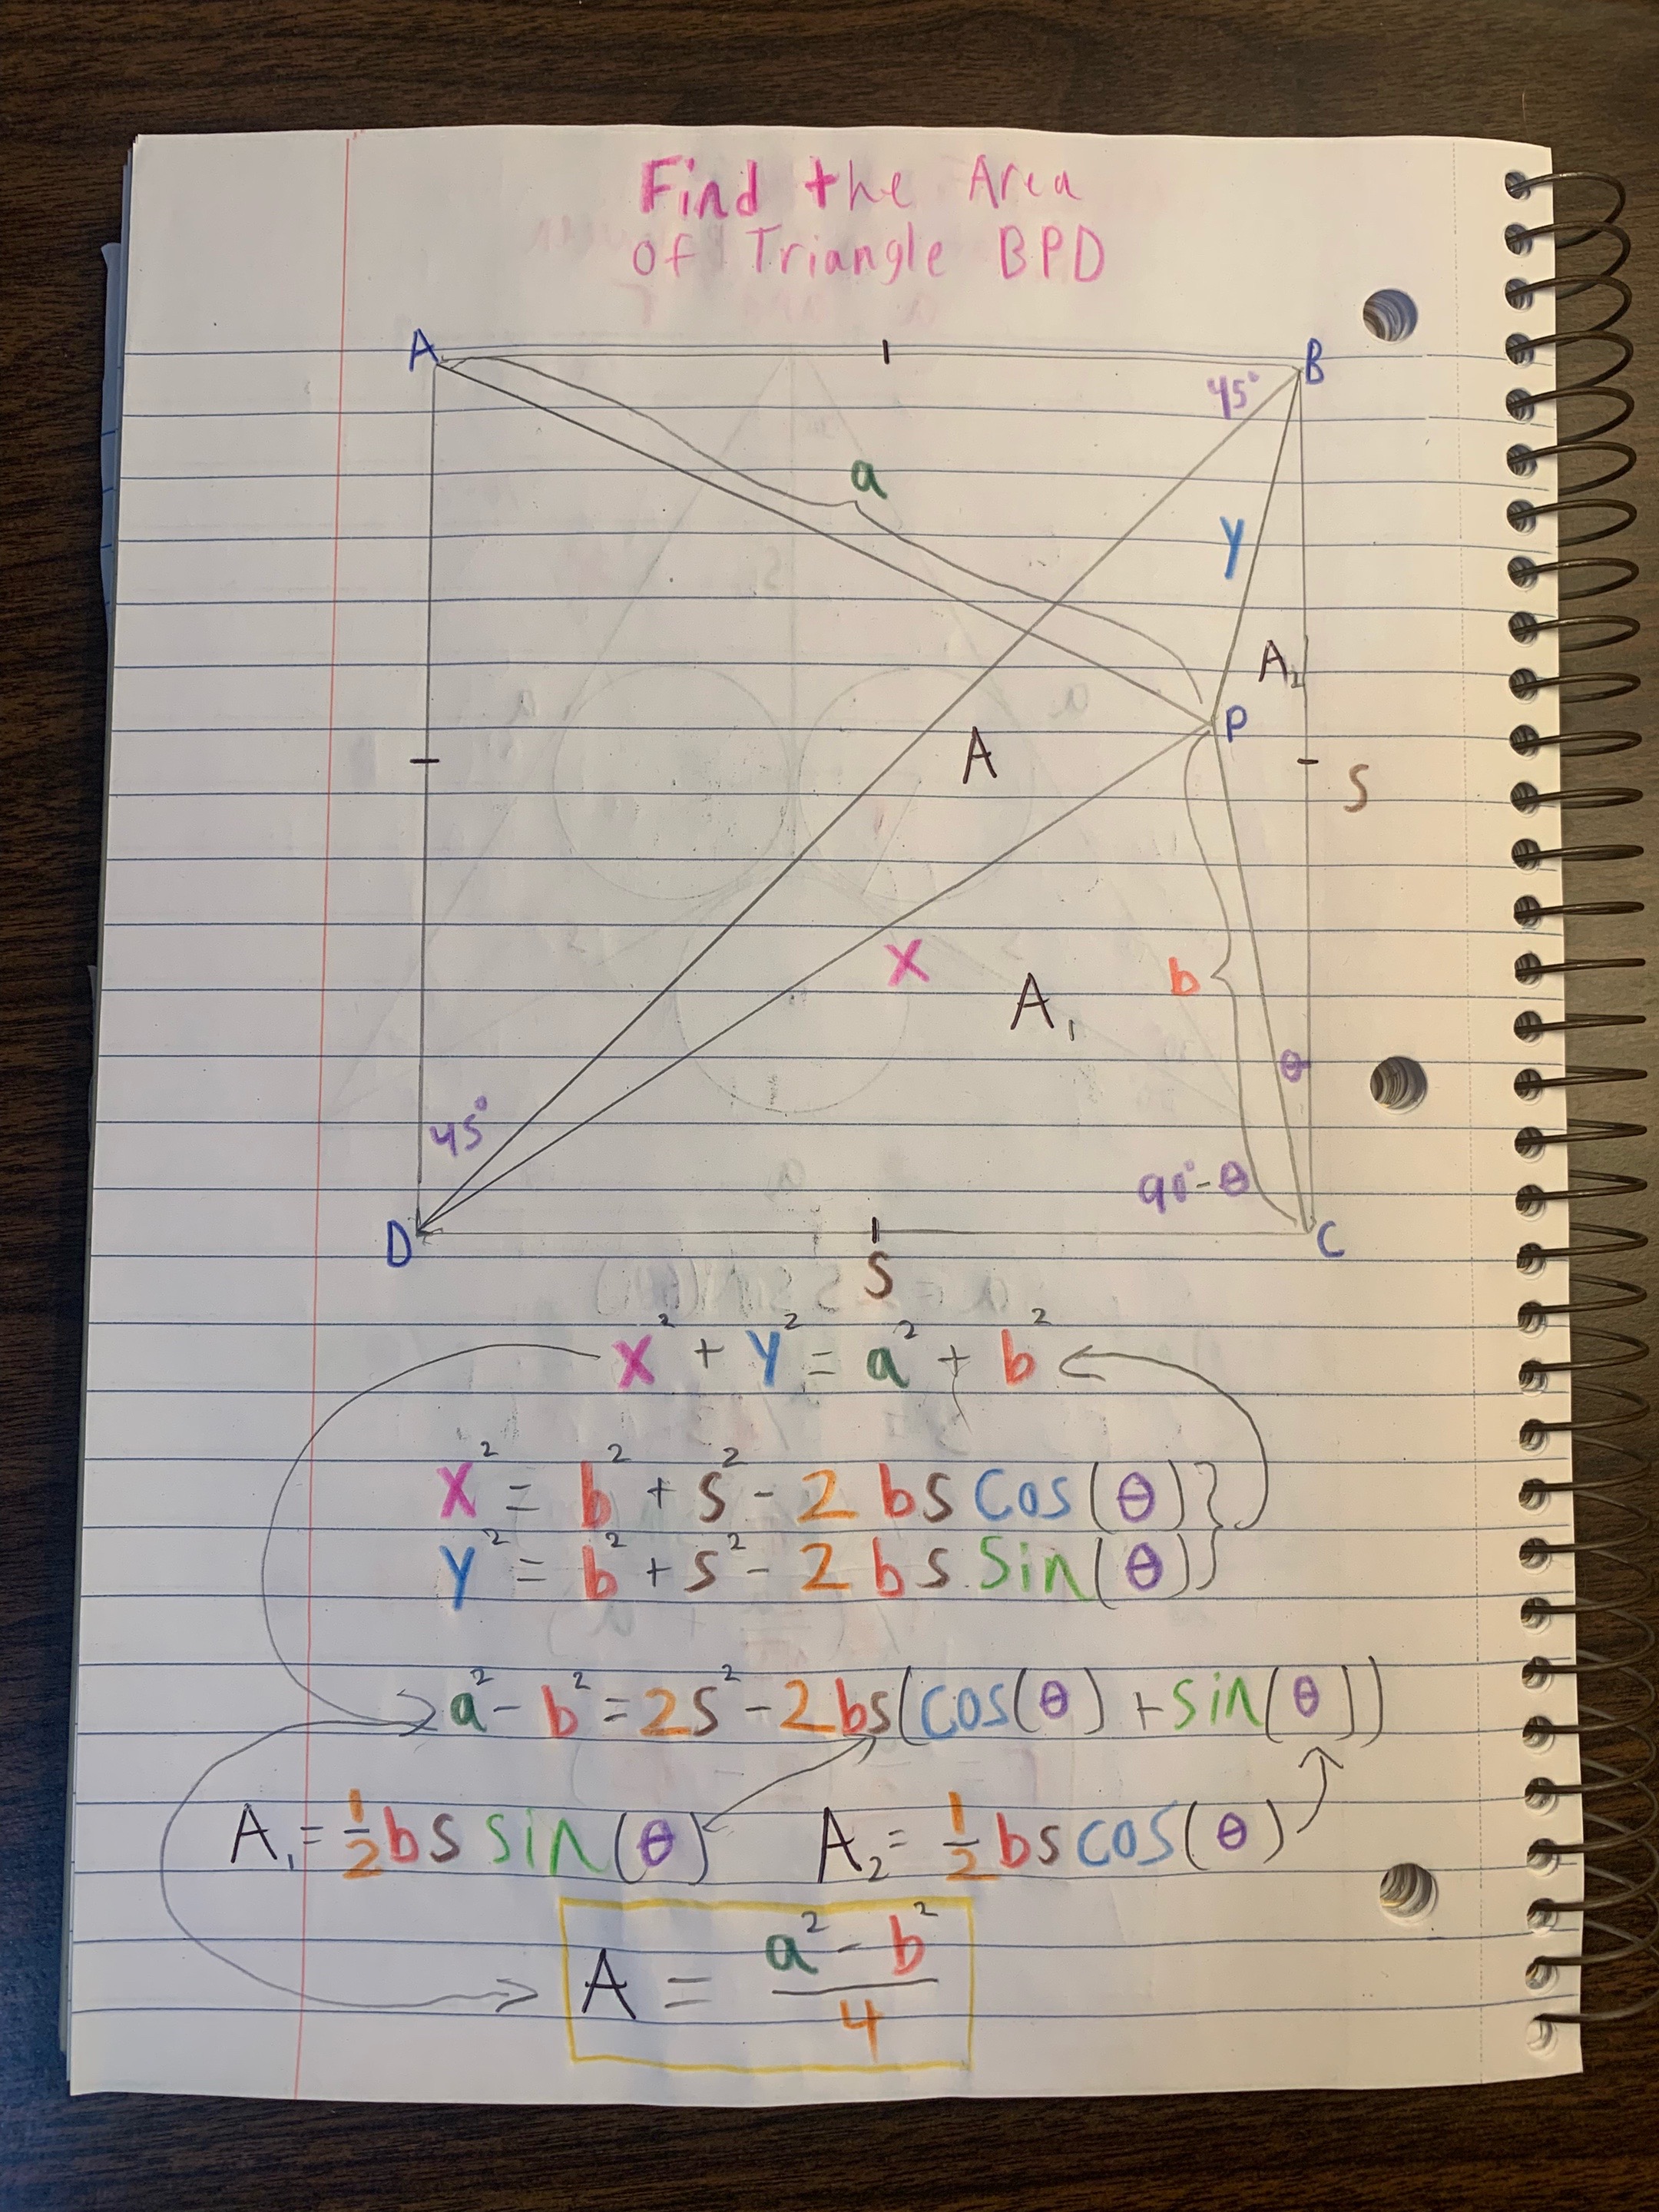 Find the Area
of Triangle BPD
A
B
45°
a
y
A₂
P
A
S
x
b
A₁
θ
45°
90°-θ
D
C
S
x² + y² = a² + b²
x² = b² + s² - 2 bs cos(θ)
y² = b² + s² - 2 bs sin(θ)
a² - b² = 2s² - 2bs(cos(θ) + sin(θ))
A₁ = ½ bs sin(θ) A₂ = ½ bs cos(θ)
A = a² - b² / 4